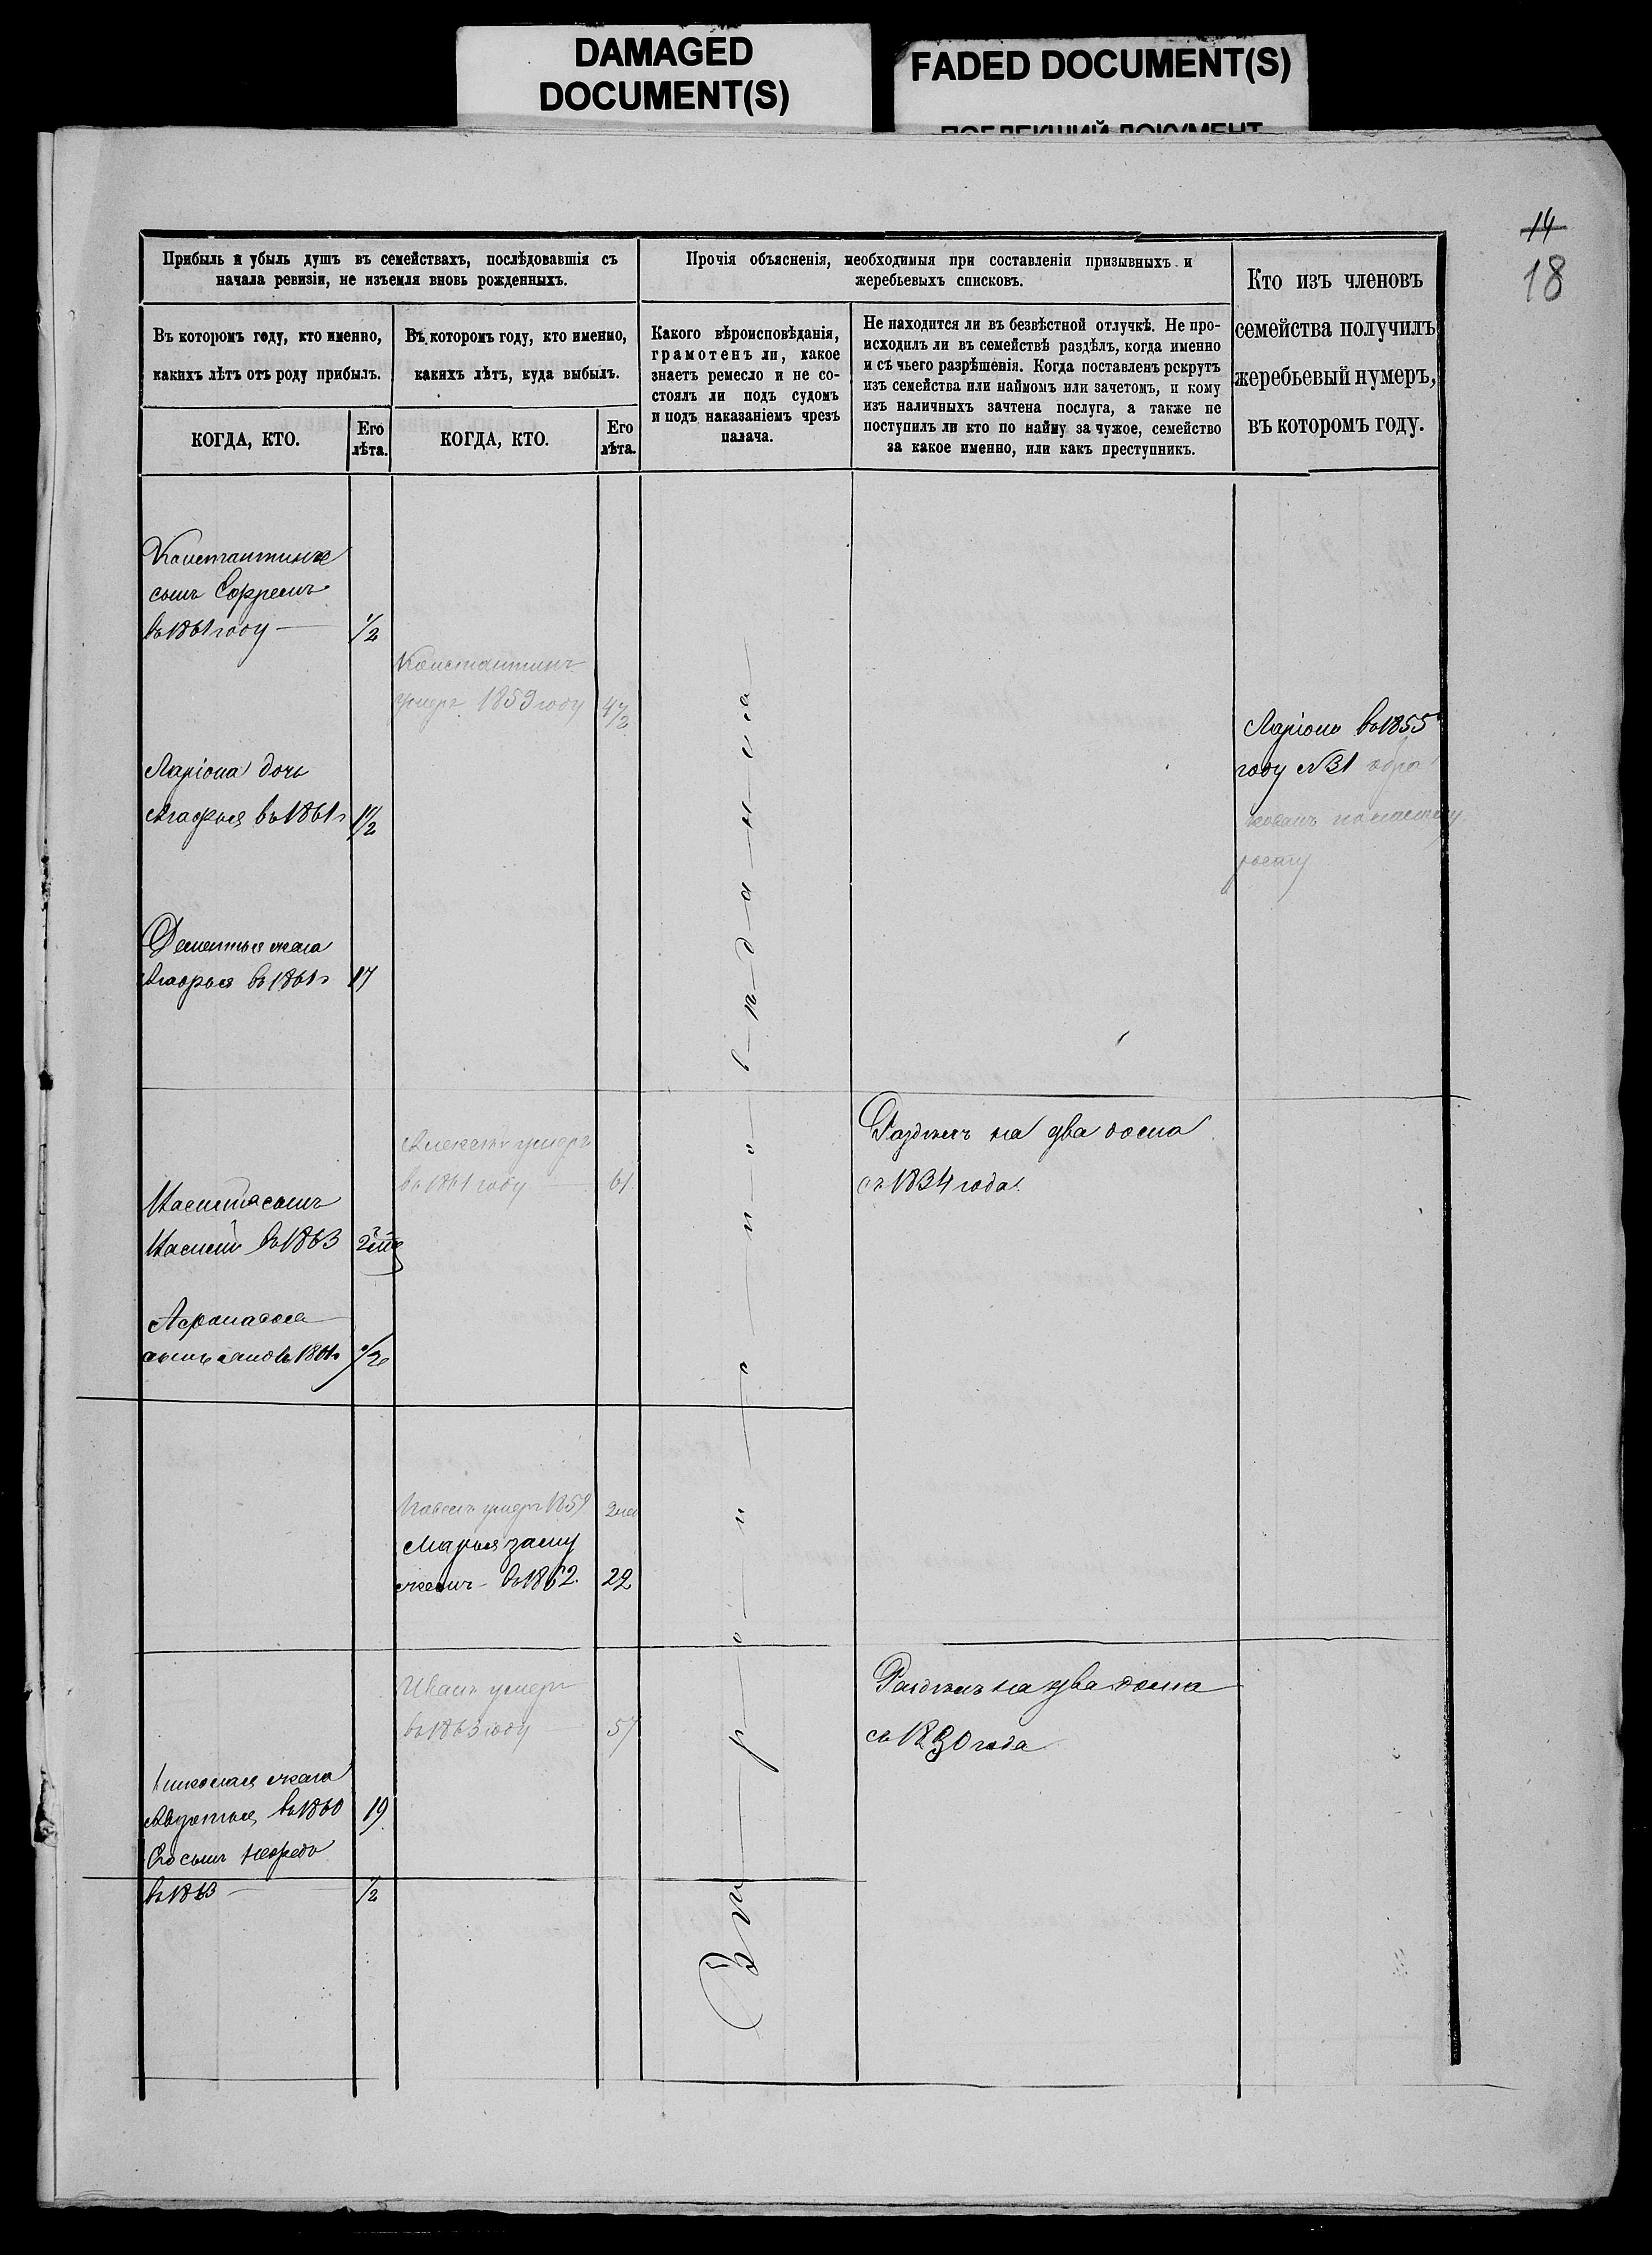 DAMAGED
DOCUMENT(S)
FADED DOCUMENT(S)
ПОБЛЕКШИЙ ДОКУМЕНТ
14
18
Прибыль и убыль душъ въ семействахъ, послѣдовавшія съ
начала ревизіи, не изъемля вновь рожденныхъ.
Прочія объясненія, необходимыя при составленіи призывныхъ и
жеребьевыхъ списковъ.
Кто изъ членовъ
семейства получилъ
жеребьевый нумеръ,
въ которомъ году.
Въ которомъ году, кто именно,
какихъ лѣтъ отъ роду прибылъ.
Въ которомъ году, кто именно,
какихъ лѣтъ, куда выбылъ.
Какого вѣроисповѣданія,
грамотенъ ли, какое
знаетъ ремесло и не со-
стоялъ ли подъ судомъ
и подъ наказаніемъ чрезъ
палача.
Не находится ли въ безвѣстной отлучкѣ. Не про-
исходилъ ли въ семействѣ раздѣлъ, когда именно
и съ чьего разрѣшенія. Когда поставленъ рекрутъ
изъ семейства или наймомъ или зачетомъ, и кому
изъ наличныхъ зачтена послуга, а также не
поступилъ ли кто по найму за чужое, семейство
за какое именно, или какъ преступникъ.
КОГДА, КТО.
Его
лѣта.
КОГДА, КТО.
Его
лѣта.
Константина
сынъ Ефремъ
въ 1861 году 1/2
Константинъ
умеръ 1859 году 4 1/2
Ларіонъ въ 1855
году №31
росту
Ларіона дочь
Агафья въ 1861 г 1 1/2
Дементья жена
Агафья въ 1861 г 17
Алексѣй умеръ
въ 1861 году 61
Раздѣлъ на два дома
съ 1834 года.
сынъ
въ 1863
Афонасья
сынъ въ 1861 г 1/2
умеръ 1859
Марья заму
жемъ въ 1862 22
Иванъ умеръ
въ 1863 году 57
Раздѣлъ на два дома
съ 1830 года
Николая жена
Авдотья въ 1860 19
сынъ
въ 1863 1/2
вѣданія